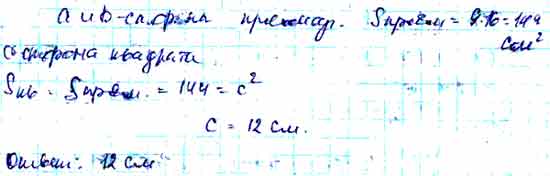 a и b - стороны прямоуг. Sпрям = 9·16 = 144 см²
c сторона квадрата
Sкв = Sпрям. = 144 = c²
c = 12 см.
Ответ: 12 см